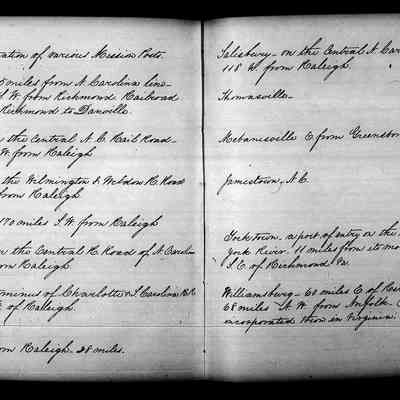 ation of various Mission Posts.
5 miles from N. Carolina line-
S. W. from Richmond Railroad
Richmond to Danville.
the Central N. C. Rail Road-
W. from Raleigh
the Wilmington & Weldon R. Road
from Raleigh
170 miles S. W from Raleigh
the Central R. Road of N. Carolina
om Raleigh.
minus of Charlotte & S. Carolina R. R.
of Raleigh.
om Raleigh- 28 miles.
Salisbury- on the Central N. Car
118 W. from Raleigh.
Thomasville-
Mebanesville E from Greensbor
Jamestown, N. C.
Yorktown, a port of entry on the
York River. 11 miles from its mo
S. E. of Richmond Va
Williamsburg- 60 miles E of Ric
68 miles N. W. from Norfolk
incorporated town in Virginia.